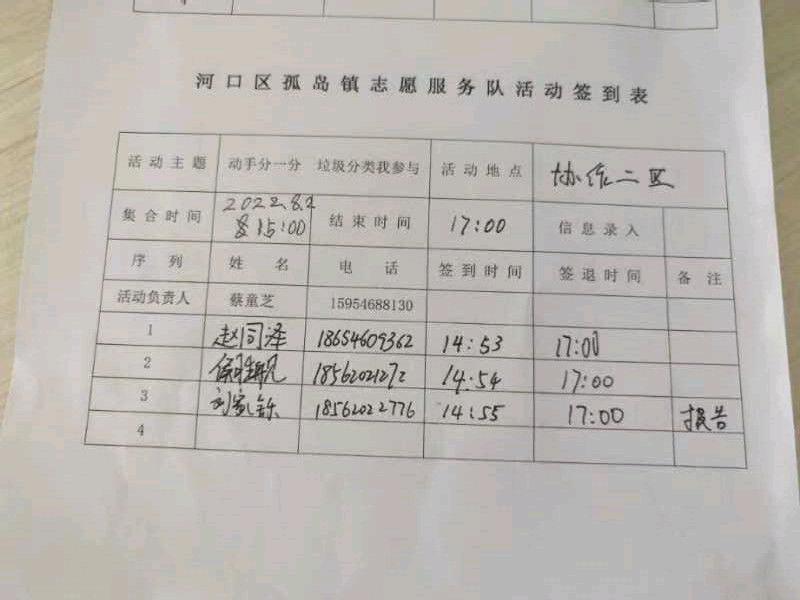 河口区孤岛镇志愿服务队活动签到表
活动主题 动手分一分 垃圾分类我参与 活动地点 协作二区
集合时间 2022.8.2 15:00 结束时间 17:00 信息录入
序列 姓名 电话 签到时间 签退时间 备注
活动负责人 蔡童芝 15954688130
1 赵同泽 18654609362 14:53 17:00
2 18562021272 14:54 17:00
3 刘家铄 18562022776 14:55 17:00 报告
4